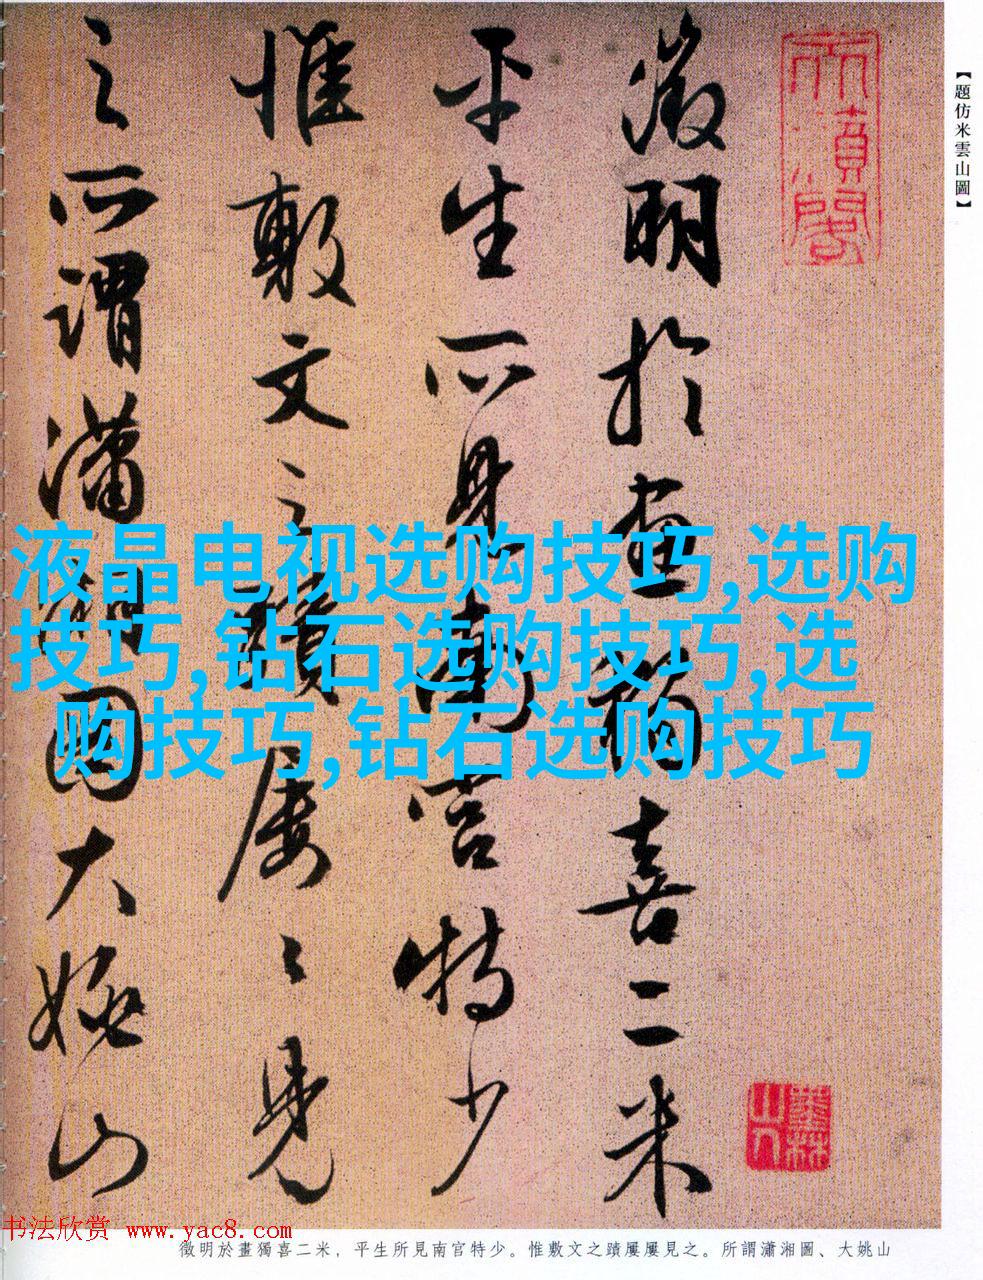 【題仿米雲山圖】
徵明於畫獨喜二米
平生所見南宫特少
惟敷文之蹟屢〻見
之所謂瀟湘圖大姚山
液晶电视选购技巧,选购
技巧,钻石选购技巧,选
购技巧,钻石选购技巧
书法欣赏 www.yac8.com
徵明於畫獨喜二米，平生所見南宫特少。惟敷文之蹟屢屢見之。所謂瀟湘圖、大姚山